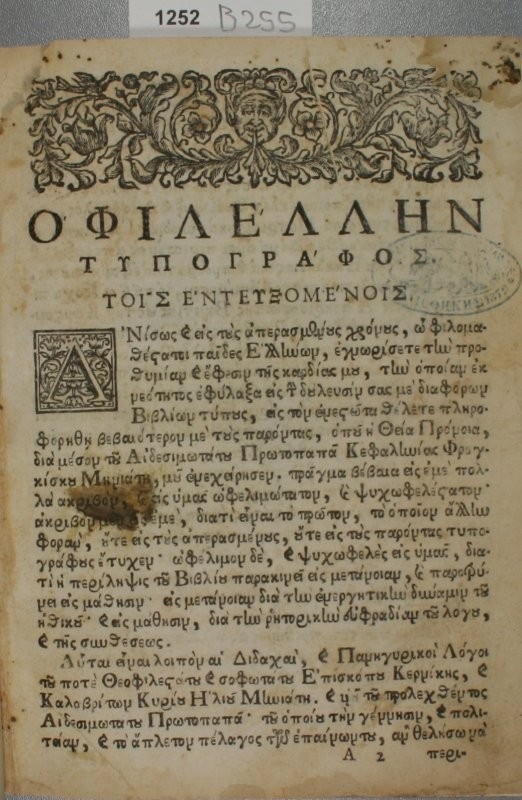 1252 B255
Ο ΦΙΛΕ΄ΛΛΗΝ
ΤΥΠΟΓΡΑ΄ΦΟΣ.
ΤΟΙ͂Σ Ε᾿ΝΤΕΥΞΟΜΕ΄ΝΟΙΣ.
ΑΝίσως ϗ εἰς τοὺς ἀπερασμένους χρόνους, ὦ φιλομα-
θέςατοι παῖδες Ελλήνων, ἐγνωρίσετε τὴν προ-
θυμίαν ϗ ἔφεσιν τῆς καρδίας μου, τὴν ὁποίαν ἐκ
νεότητος ἐφύλαξα εἰς τ δούλευσίν σας μὲ διαφόρων
Βιβλίων τύπους, εἰς τὸν ἐνεςῶτα θέλετε πληρο-
φορηθῆ βεβαιότερον μὲ τοὺς παρόντας, ὁποῦ ἡ Θεία Πρόνοια,
διὰ μέσου τοῦ Αἰδεσιμωτάτου Πρωτοπαπᾶ Κεφαλληνίας Φραγ-
κίσκου Μηνιάτη, μοῦ ἐνεχείρησεν. πρᾶγμα βέβαια εἰς ἐμὲ πολ-
λὰ ἀκριβὸν, ϗ εἰς ὑμᾶς ὠφελιμώτατον, ϗ ψυχωφελέςατον·
ἀκριβὸν μὲν εἰς ἐμὲ, διατὶ εἶναι τὸ πρῶτον, τὸ ὁποῖον ἄλλην
φορὰν, οὔτε εἰς τοὺς ἀπερασμένους, οὔτε εἰς τοὺς παρόντας τυπο-
γράφους ἔτυχεν· ὠφέλιμον δὲ, ϗ ψυχωφελὲς εἰς ὑμᾶς, δια-
τὶ ἡ περίληψις τοῦ Βιβλίου παρακινεῖ εἰς μετάνοιαν, ϗ παροξύ-
νει εἰς μάθησιν· εἰς μετάνοιαν διὰ τὴν ἐνεργητικὴν δύναμιν τοῦ
ἠθικοῦ· ϗ εἰς μάθησιν, διὰ τὴν ῥητορικὴν εὐφράδιαν τοῦ λόγου,
ϗ τῆς συνθέσεως.
Αὗται εἶναι λοιπὸν αἱ Διδαχαὶ, ϗ Πανηγυρικοὶ Λόγοι
τοῦ ποτὲ Θεοφιλεςάτου ϗ σοφωτάτου Ε᾿πισκόπου Κερνίκης, ϗ
Καλοβρίτων Κυρίου Η᾿λιοῦ Μηνιάτη. ϗ τοῦ προλεχθέντος
Αἰδεσιμωτάτου Πρωτοπαπᾶ· τοῦ ὁποίου τὴν γέννησιν, ϗ πολι-
τείαν, ϗ τὸ ἄπλετον πέλαγος τῶν ἐπαίνων του, ἂν θελήσω νὰ
Α 2 περι-